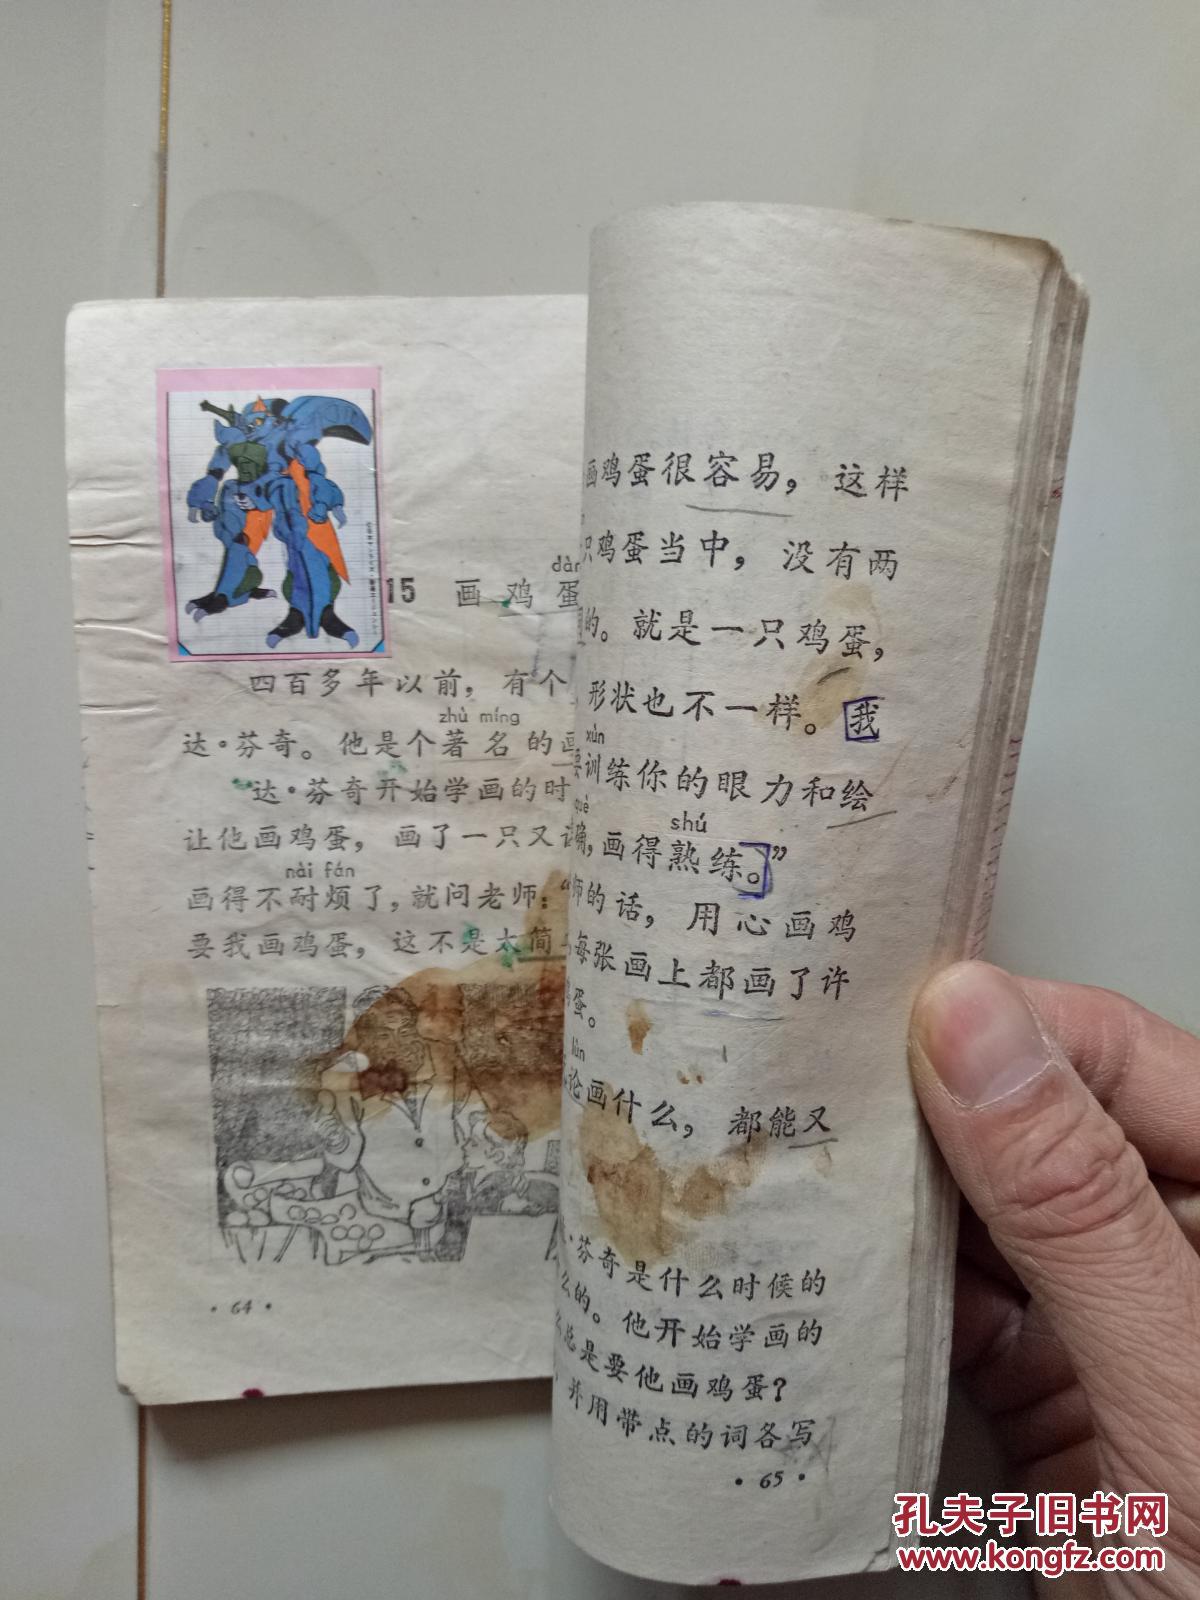 dàn
15 画鸡蛋
四百多年以前，有个
zhù míng
达·芬奇。他是个著名的画
达·芬奇开始学画的时
让他画鸡蛋，画了一只又
nài fán
画得不耐烦了，就问老师：“
要我画鸡蛋，这不是太简
·64·
画鸡蛋很容易，这样
只鸡蛋当中，没有两
的。就是一只鸡蛋，
形状也不一样。我
xùn
要训练你的眼力和绘
què shú
确，画得熟练。”
师的话，用心画鸡
每张画上都画了许
鸡蛋。
lùn
论画什么，都能又
·芬奇是什么时候的
么的。他开始学画的
么总是要他画鸡蛋？
，并用带点的词各写
·65·
孔夫子旧书网
www.kongfz.com